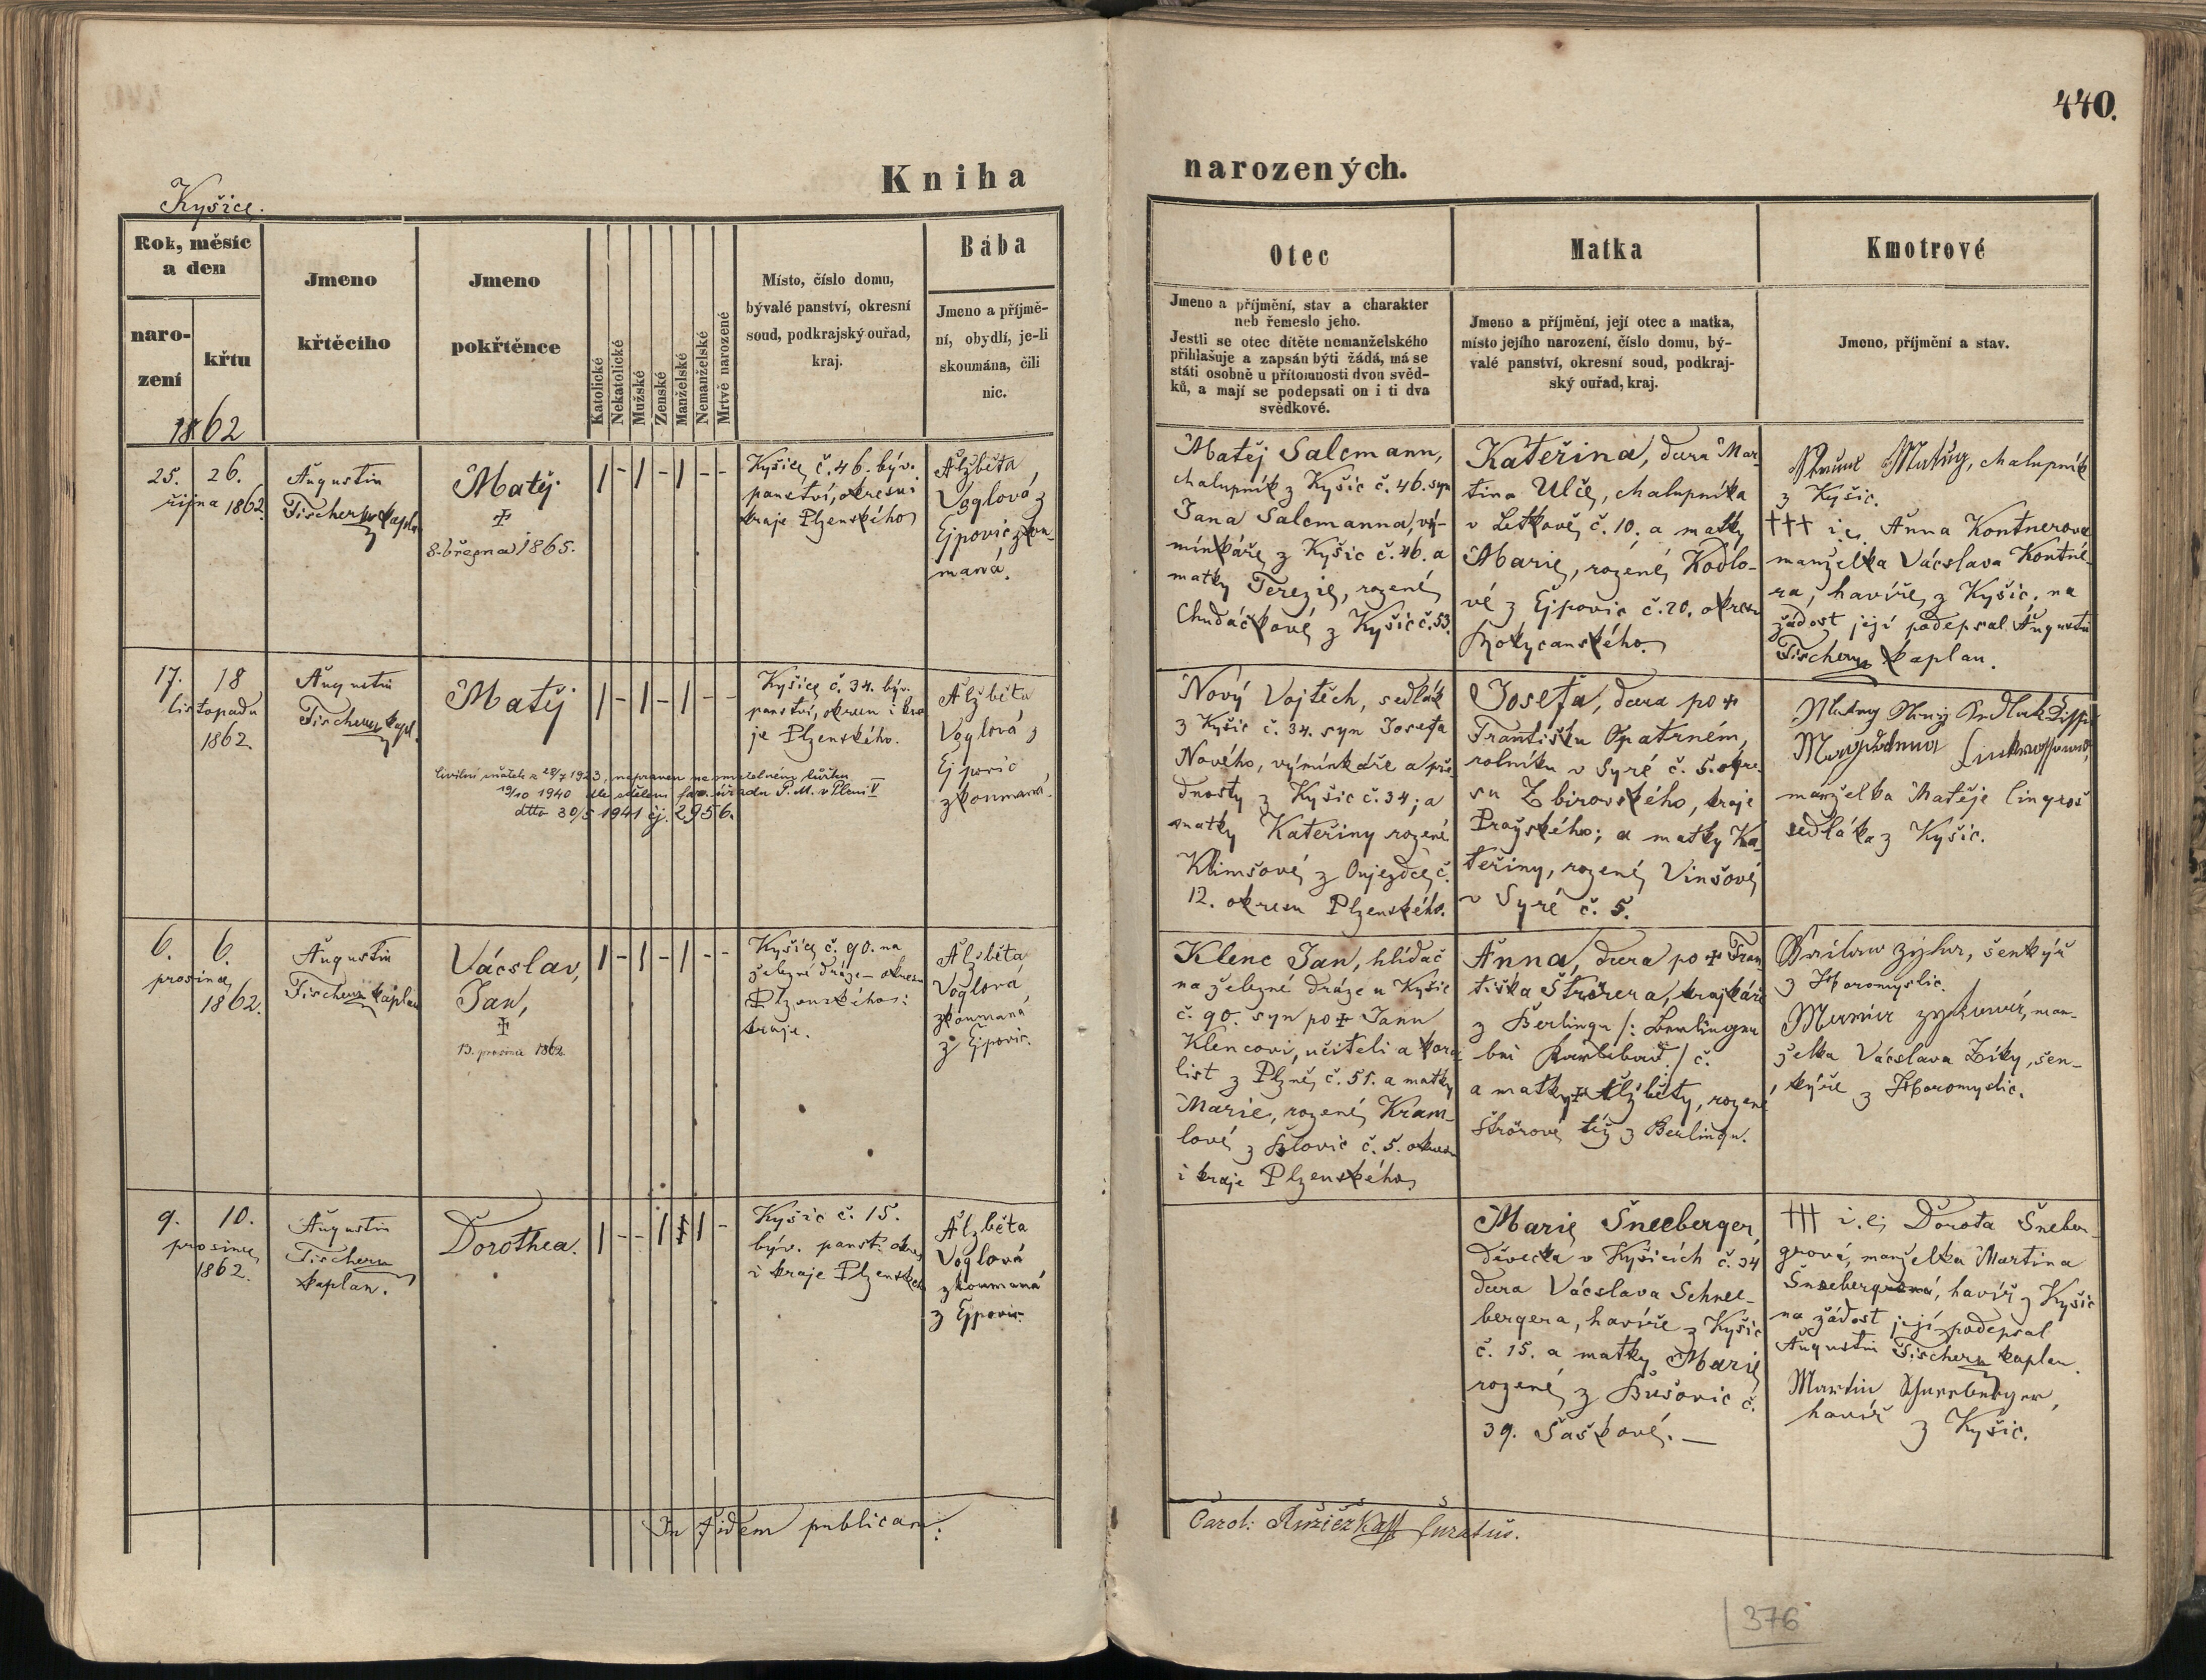 440.
Kniha
narozených.
Kyšice.
Rok, měsíc
a den
naro-
zení
křtu
1862
Jmeno
křtěcího
Jmeno
pokřtěnce
Katolické
Nekatolické
Mužské
Ženské
Manželské
Nemanželské
Mrtvě narozené
Místo, číslo domu,
bývalé panství, okresní
soud, podkrajský ouřad,
kraj.
Bába
Jmeno a příjmě-
ní, obydlí, je-li
skoumána, čili
nic.
Otec
Jmeno a příjmění, stav a charakter
neb řemeslo jeho.
Jestli se otec dítěte nemanželského
přihlašuje a zapsán býti žádá, má se
státi osobně u přítomnosti dvou svěd-
ků, a mají se podepsati on i ti dva
svědkové.
Matka
Jmeno a příjmění, její otec a matka,
místo jejího narození, číslo domu, bý-
valé panství, okresní soud, podkraj-
ský ouřad, kraj.
Kmotrové
Jmeno, příjmění a stav.
25. 26.
října 1862.
Augustin
Fischer kapl.
Matěj
8. března 1865.
Kyšice č. 46. býv.
panství, okresu i
kraje Plzenského
Alžběta
Voglová z
Ejpovic zkou-
maná.
Matěj Salcmann,
chalupník z Kyšic č. 46. syn
Jana Salcmanna, vý-
minkáře z Kyšic č. 46. a
matky Terezie, rozené
Chudáčkové z Kyšic č. 53.
Kateřina, dcera Mar-
tina Ulče, chalupníka
v Letkově č. 10. a matky
Marie, rozené Kodlo-
vé z Ejpovic č. 20. okresu
Rokycanského.
Matěj, chalupník
z Kyšic.
††† i.e. Anna Kontnerova
manželka Vácslava Kontne-
ra, havíře z Kyšic, na
žádost její podepsal Augustin
Fischer kaplan.
17. 18
listopadu
1862.
Augustin
Fischer kapl.
Matěj
Kyšice č. 34. býv.
panství, okresu i kra
je Plzenského.
Alžběta
Voglová z
Ejpovic
zkoumaná.
Civilní sňatek z 28/7 1923, napraven na smrtelném lůžku
19/10 1940 dle sdělení far. úřadu P. M. v Plzni V
dtto 30/5 1941 čj. 2956.
Nový Vojtěch, sedlák
z Kyšic č. 34. syn Josefa
Nového, výminkáře a pří
dnosty z Kyšic č. 34; a
matky Kateřiny rozené
Klimšové z Oujezdce č.
12. okresu Plzenského.
Josefa, dcera po †
Františku Opatrném,
rolníku v Syré č. 5. okre-
su Zbirovského, kraje
Pražského; a matky Ka-
teřiny, rozené Vinšové
v Syré č. 5.
manželka Matěje Lingroš
sedláka z Kyšic.
6. 6.
prosince
1862.
Augustin
Fischer kaplan
Vácslav,
Jan,
13. prosince 1862.
Kyšice č. 90. na
železné dráze – okresu
Plzenského i
kraje.
Alžběta
Voglová
zkoumaná
z Ejpovic.
Klenc Jan, hlídač
na železné dráze u Kyšic
č. 90. syn po † Janu
Klencovi, učiteli a
list z Plzně č. 51. a matky
Marie, rozené Kram-
lové z č. 5. okresu
i kraje Plzenského
Anna, dcera po † Fran
tiška Štröera, krajkáře
z Berlingu /: Berlingen
bei :/ č.
a matky † Alžběty, rozené
Štrörové též z Berlingu.
šenkýř
z Horomyslic.
man-
želka Vácslava Ziky, šen-
kýře z Horomyslic.
9. 10.
prosince
1862.
Augustin
Fischer
kaplan.
Dorothea.
Kyšic č. 15.
býv. panst. okres
i kraje Plzenského
Alžběta
Voglová
zkoumaná
z Ejpovic.
Marie Šneeberger,
děvečka v Kyšicích č. 34
dcera Vácslava Schnee-
bergera, havíře z Kyšic
č. 15. a matky Marie
rozené z Bušovic č.
39. Šaškové. —
††† i.e. Dorota Šneber-
grová, manželka Martina
Šneebergrová, havíř z Kyšic
na žádost její podepsal
Augustin Fischer kaplan.
Martin Schneeberger,
havíř z Kyšic.
In fidem publicam:
Carol: Růžička Curatus.
376